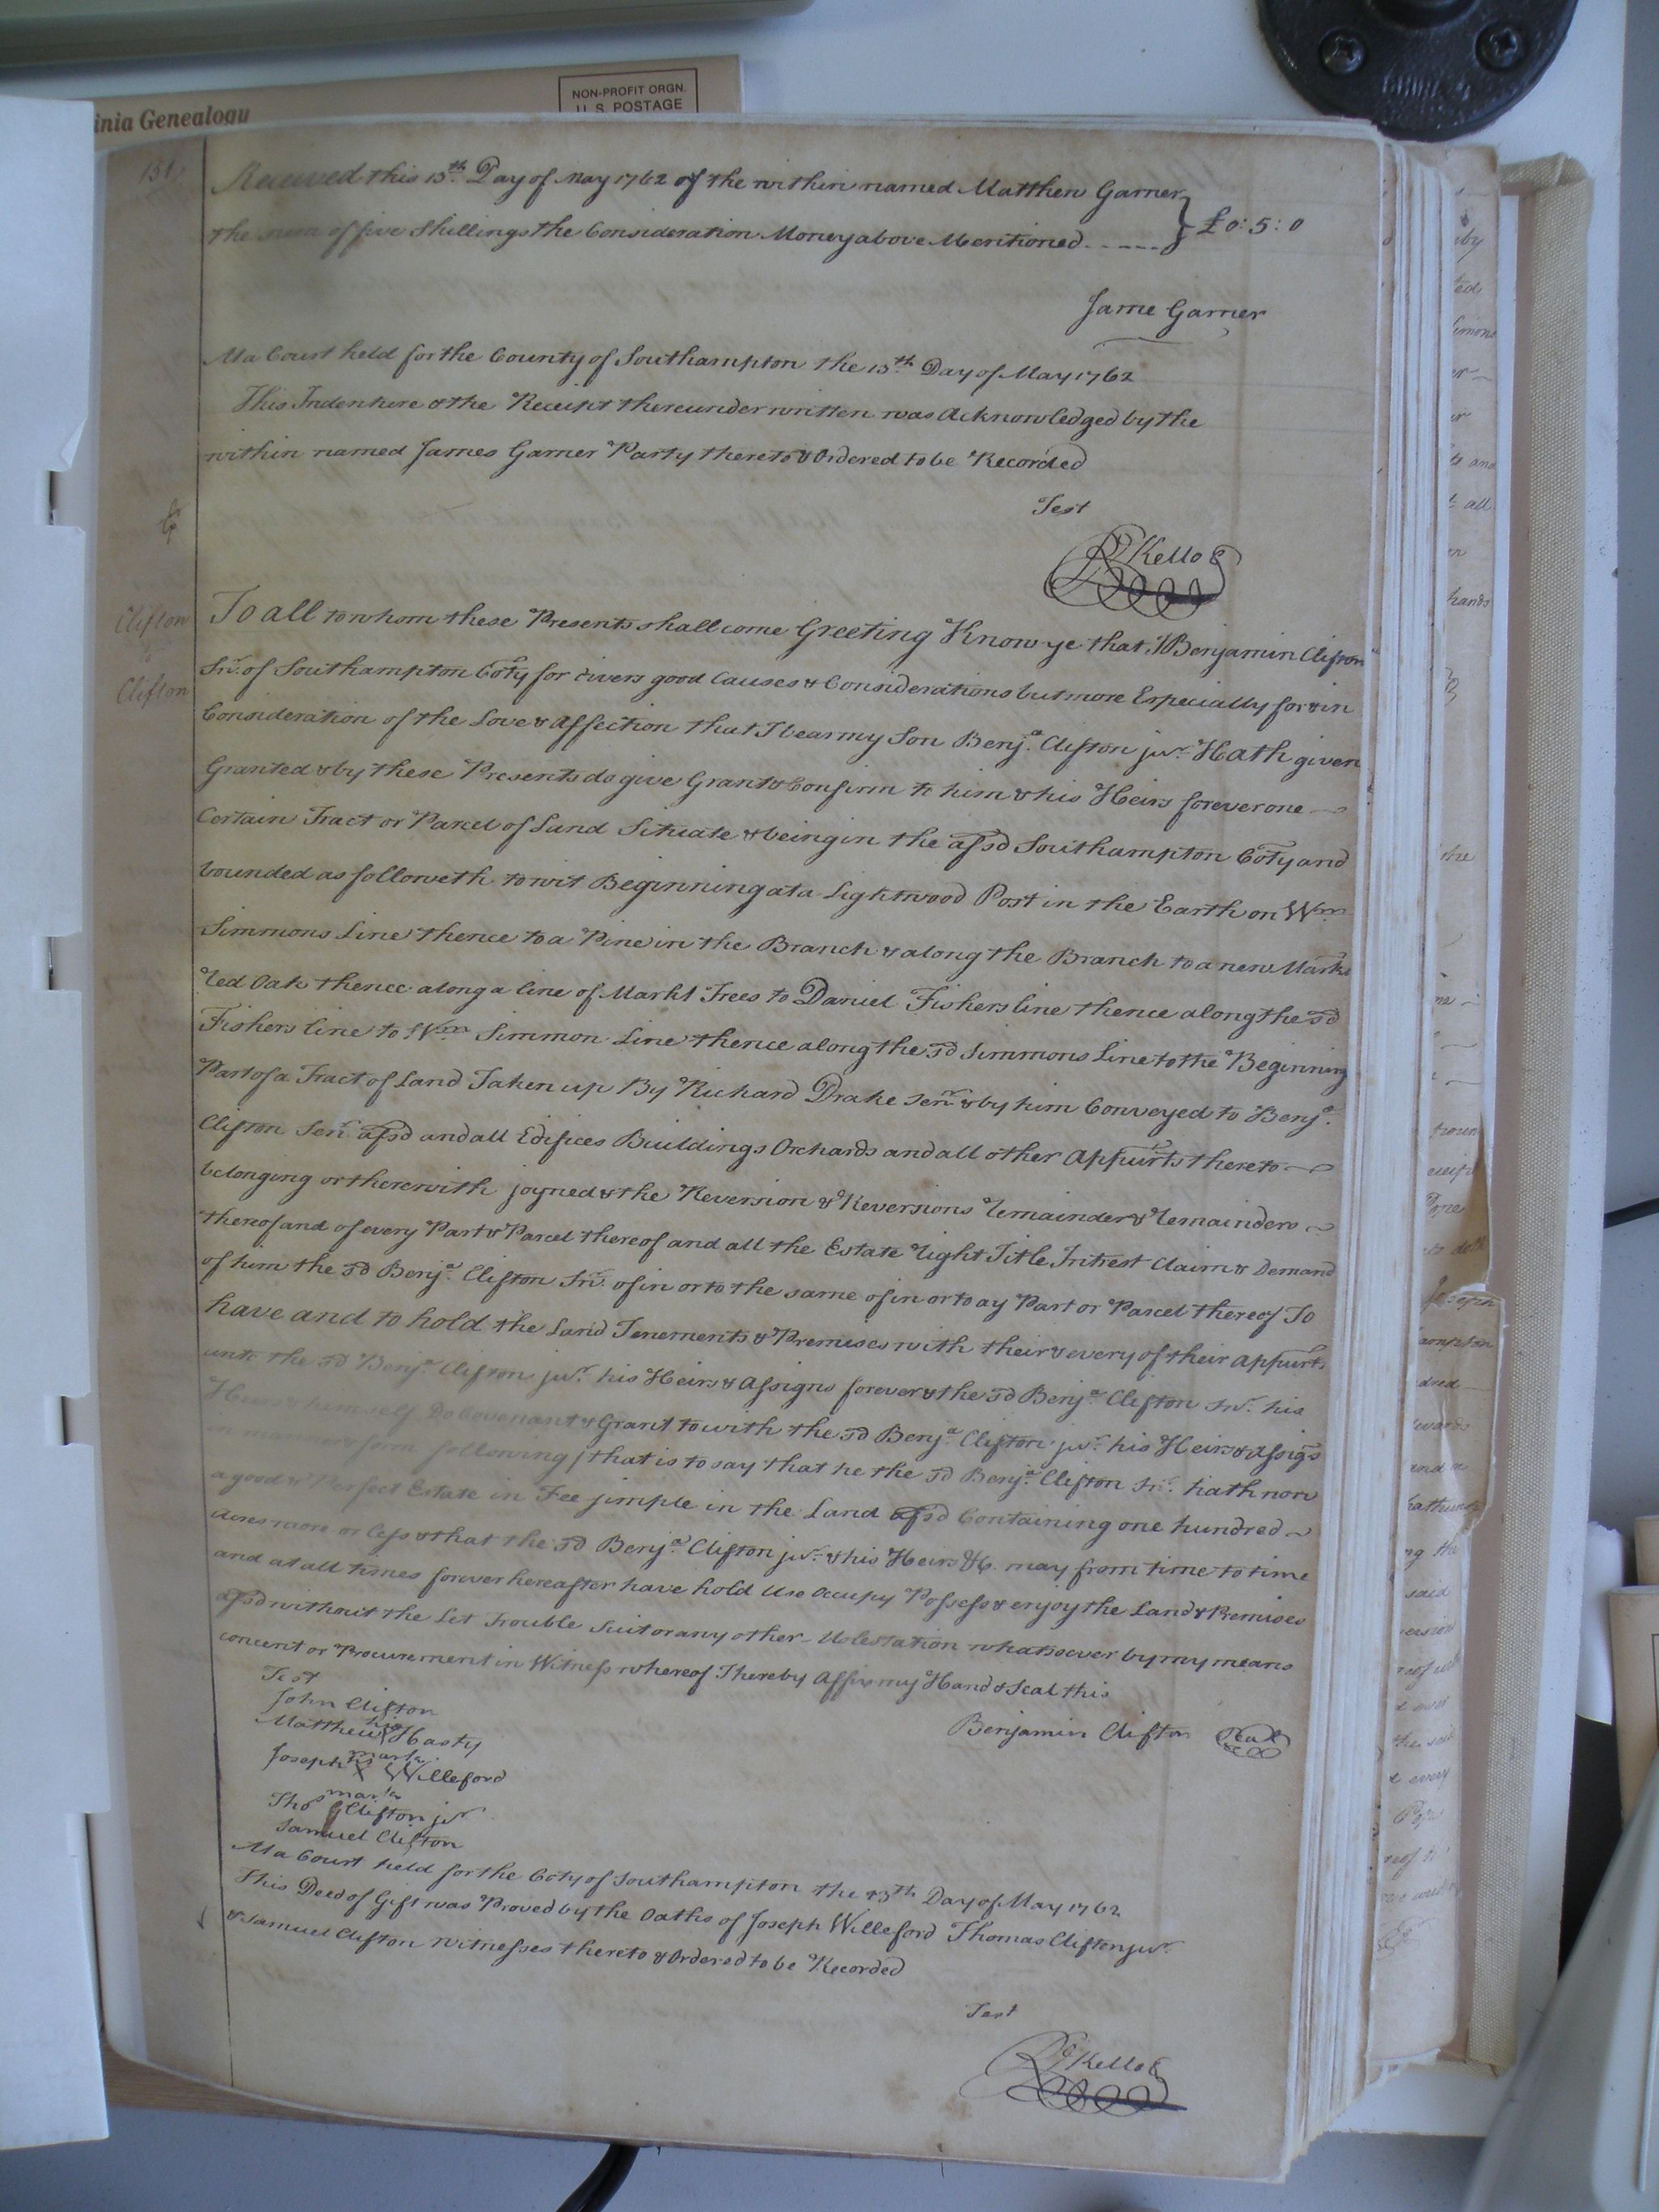 inia Genealogy
NON-PROFIT ORGN.
U.S. POSTAGE
151
Received this 13th Day of May 1762 of the within named Matthew Garner
the sum of five Shillings the Consideration Money above Mentioned - - - - - } £0:5:0
Jame Garner
At a Court held for the County of Southampton the 13th Day of May 1762
This Indenture & the Receipt thereunder written was Acknowledged by the
within named James Garner Party thereto & Ordered to be Recorded
Test
Rd Kello C
Clifton
to
Clifton
To all to whom these Presents shall come Greeting Know ye that I Benjamin Clifton
Snr. of Southampton Coty for divers good Causes & Considerations but more Especially for & in
Consideration of the Love & Affection that I bear my Son Benja. Clifton junr. Hath given
Granted & by these Presents do give Grant & Confirm to him & his Heirs forever one
Certain Tract or Parcel of Land Situate & being in the afsd Southampton Coty and
bounded as followeth to wit Beginning at a Lightwood Post in the Earth on Wm
Simmons Line thence to a Pine in the Branch & along the Branch to a new Markt
red Oak thence along a line of Markt Trees to Daniel Fishers line thence along the sd
Fishers line to Wm Simmon Line thence along the sd Simmons Line to the Beginning
Part of a Tract of Land Taken up By Richard Drake Senr & by him Conveyed to Benja.
Clifton Senr. afsd and all Edifices Buildings Orchards and all other Appurts thereto
belonging or therewith joyned & the Reversion & Reversions remainder & remainders
thereof and of every Part & Parcel thereof and all the Estate right Title Intrest Claim & Demand
of him the sd Benja. Clifton Snr. of in or to the same of in or to ay Part or Parcel thereof To
have and to hold the Land Tenements & Premises with their & every of their Appurts
unto the sd Benja Clifton junr. his Heirs & Assigns forever & the sd Benja Clifton Snr. his
Heirs himself Do Covenant & Grant to with the sd Benja Clifton junr. his Heirs & Assigs
in manner & form following that is to say that he the sd Benja Clifton Snr. hath now
a good & Perfect Estate in Fee simple in the Land afsd Containing one hundred
acres more or less & that the sd Benja Clifton junr. & his Heirs &c. may from time to time
and at all times forever hereafter have hold Use Occupy Possess & enjoy the Land & Premises
afsd without the Let Trouble Suit or any other Molestation whatsoever by my means
concent or Procurement in Witness whereof I hereby Affix my Hand & Seal this
Test
John Clifton
Benjamin Clifton Seal
his
Matthew Hasty
mark
Joseph X Willeford
mark
Thos Clifton junr
Samuel Clifton
At a Court held for the Coty of Southampton the 13th Day of May 1762
This Deed of Gift was Proved by the Oaths of Joseph Willeford Thomas Clifton junr.
& Samuel Clifton Witnesses thereto & Ordered to be Recorded
Test
Rd Kello C